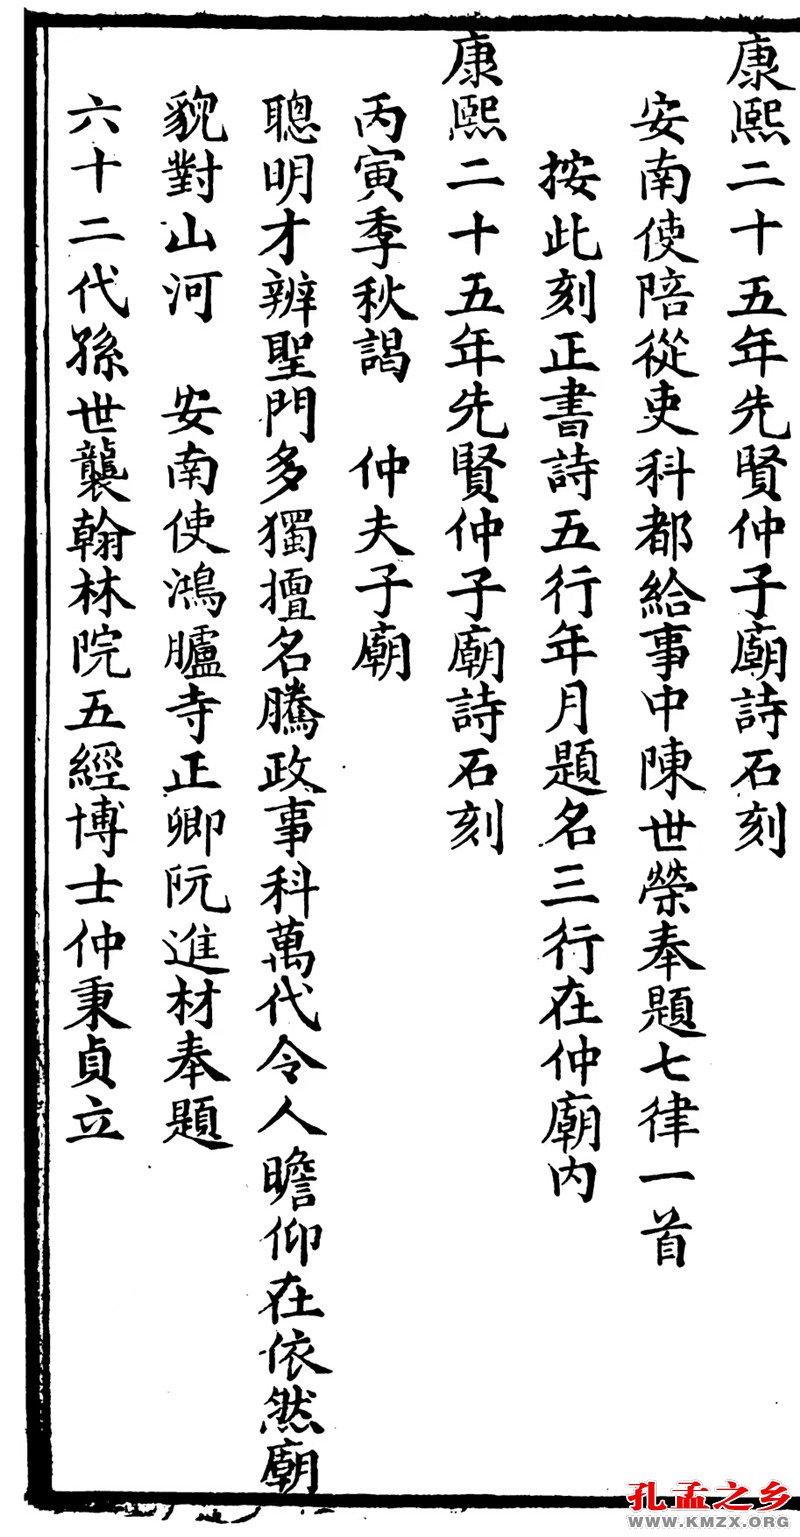 康熙二十五年先賢仲子廟詩石刻
安南使陪從吏科都給事中陳世榮奉題七律一首
按此刻正書詩五行年月題名三行在仲廟内
康熙二十五年先賢仲子廟詩石刻
丙寅季秋謁　仲夫子廟
聰明才辨聖門多獨擅名騰政事科萬代令人瞻仰在依然廟
貌對山河　安南使鴻臚寺正卿阮進材奉題
六十二代孫世襲翰林院五經博士仲秉貞立
孔孟之乡
WWW.KMZX.ORG